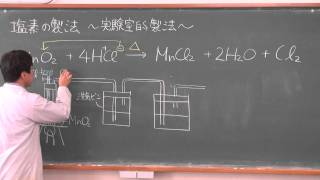 塩素の製法 ～実験室的製法～
nO₂ + 4HCl → MnCl₂ + 2H₂O + Cl₂
△
MnO₂